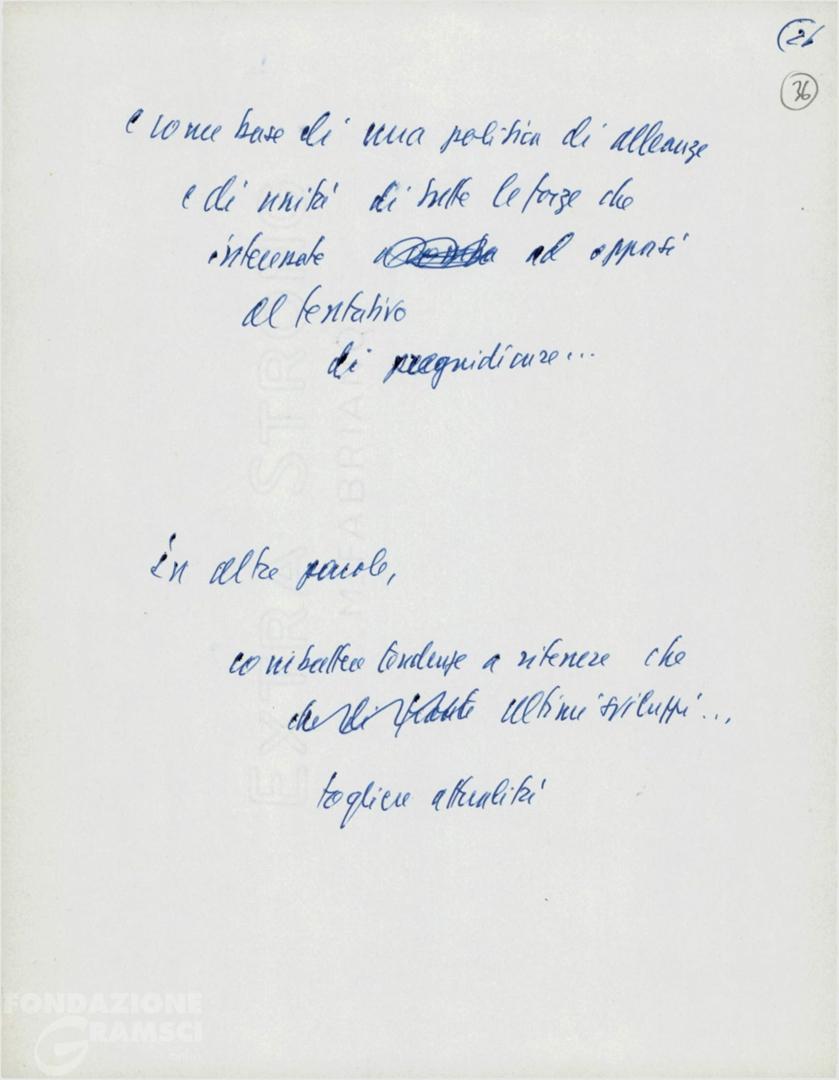 26
36
e come base di una politica di alleanze
e di unità di tutte le forze che
interessate ad opporsi
al tentativo
di pregiudicare...
In altre parole,
combattere tendenze a ritenere che
che di fronte ultimi sviluppi...,
togliere attualità
EXTRA STRONG
FABRIANO
FONDAZIONE
GRAMSCI